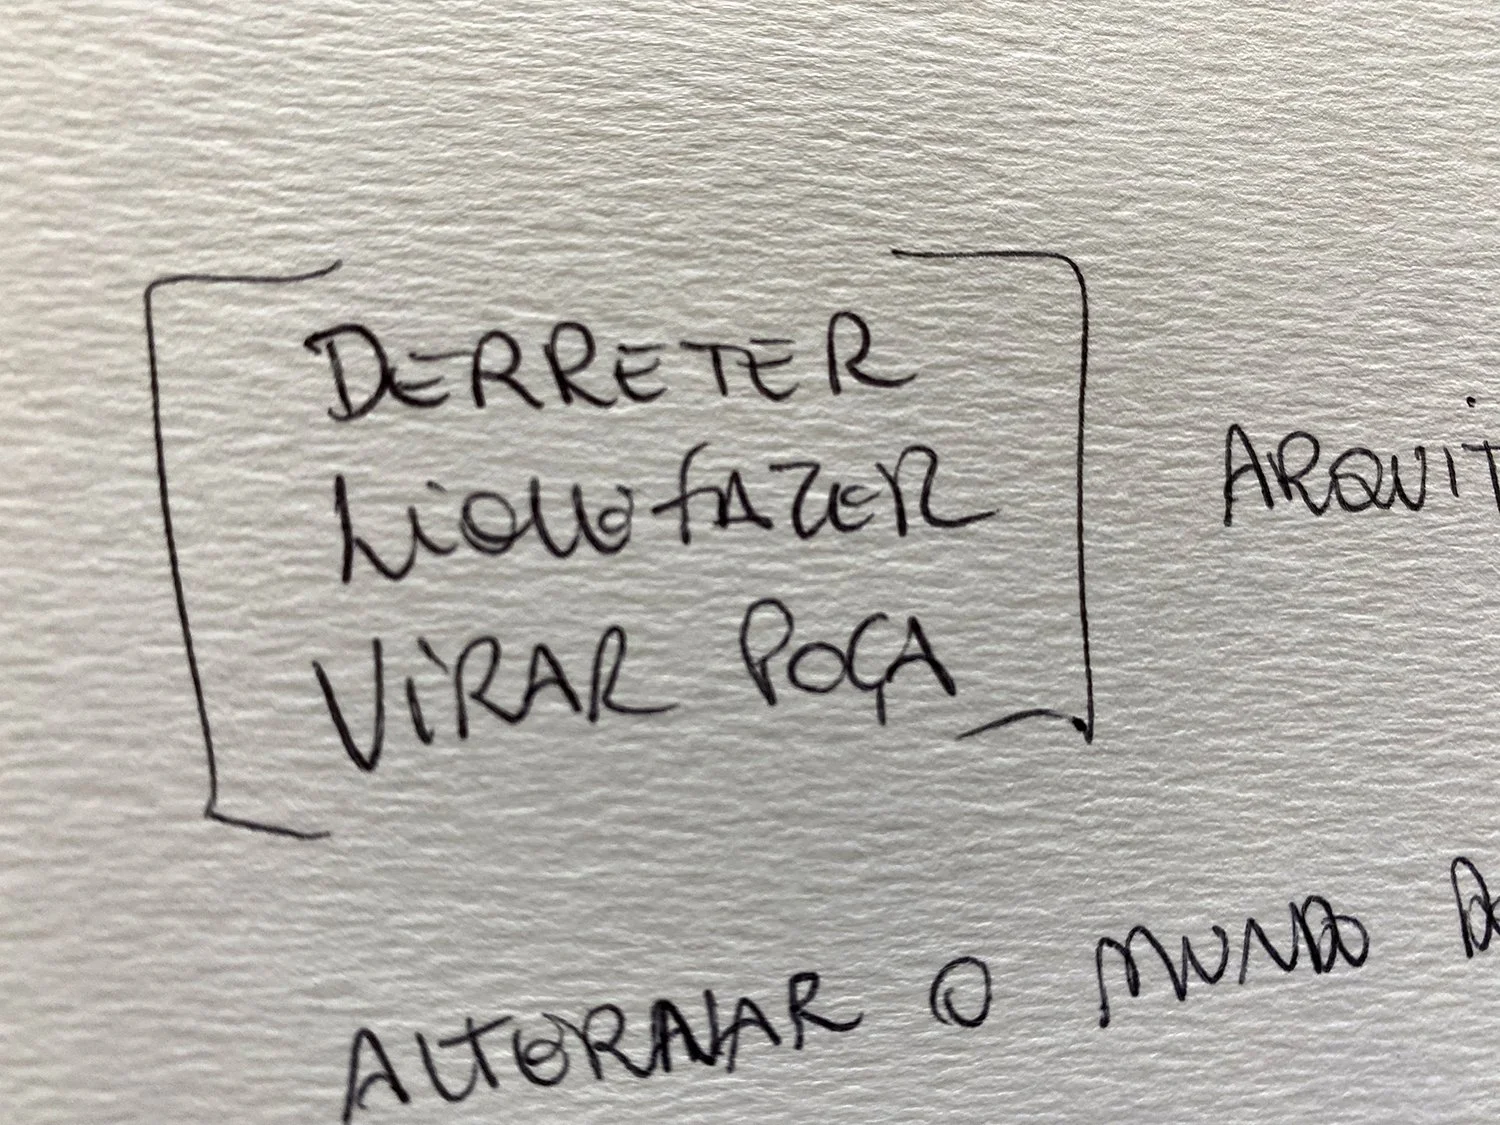 DERRETER
LIQUEFAZER
VIRAR POÇA
ARQUIT
ALTERNAR O MUNDO